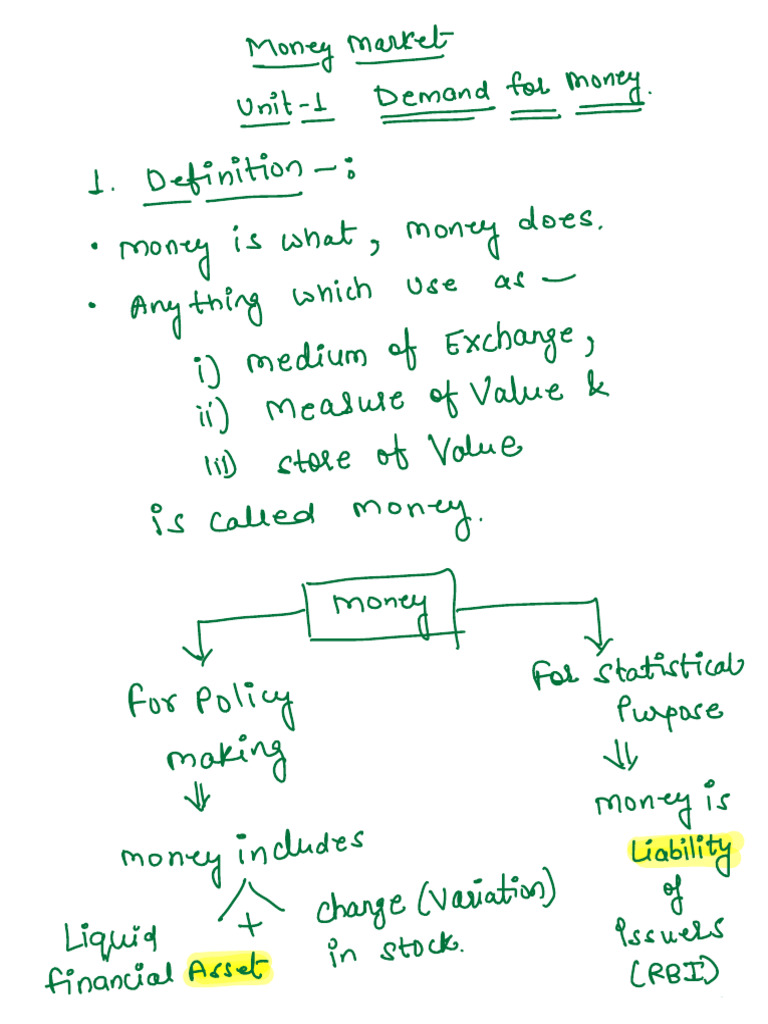 Money Market
Unit-1 Demand for Money.
1. Definition -:
• Money is what, money does.
• Anything which use as —
i) Medium of Exchange,
ii) Measure of Value &
iii) Store of Value
is called money.
Money
For Policy
making
For Statistical
Purpose
Money includes
Money is
Liability
of
Issuers
(RBI)
Liquid
financial Asset
+
change (Variation)
in stock.